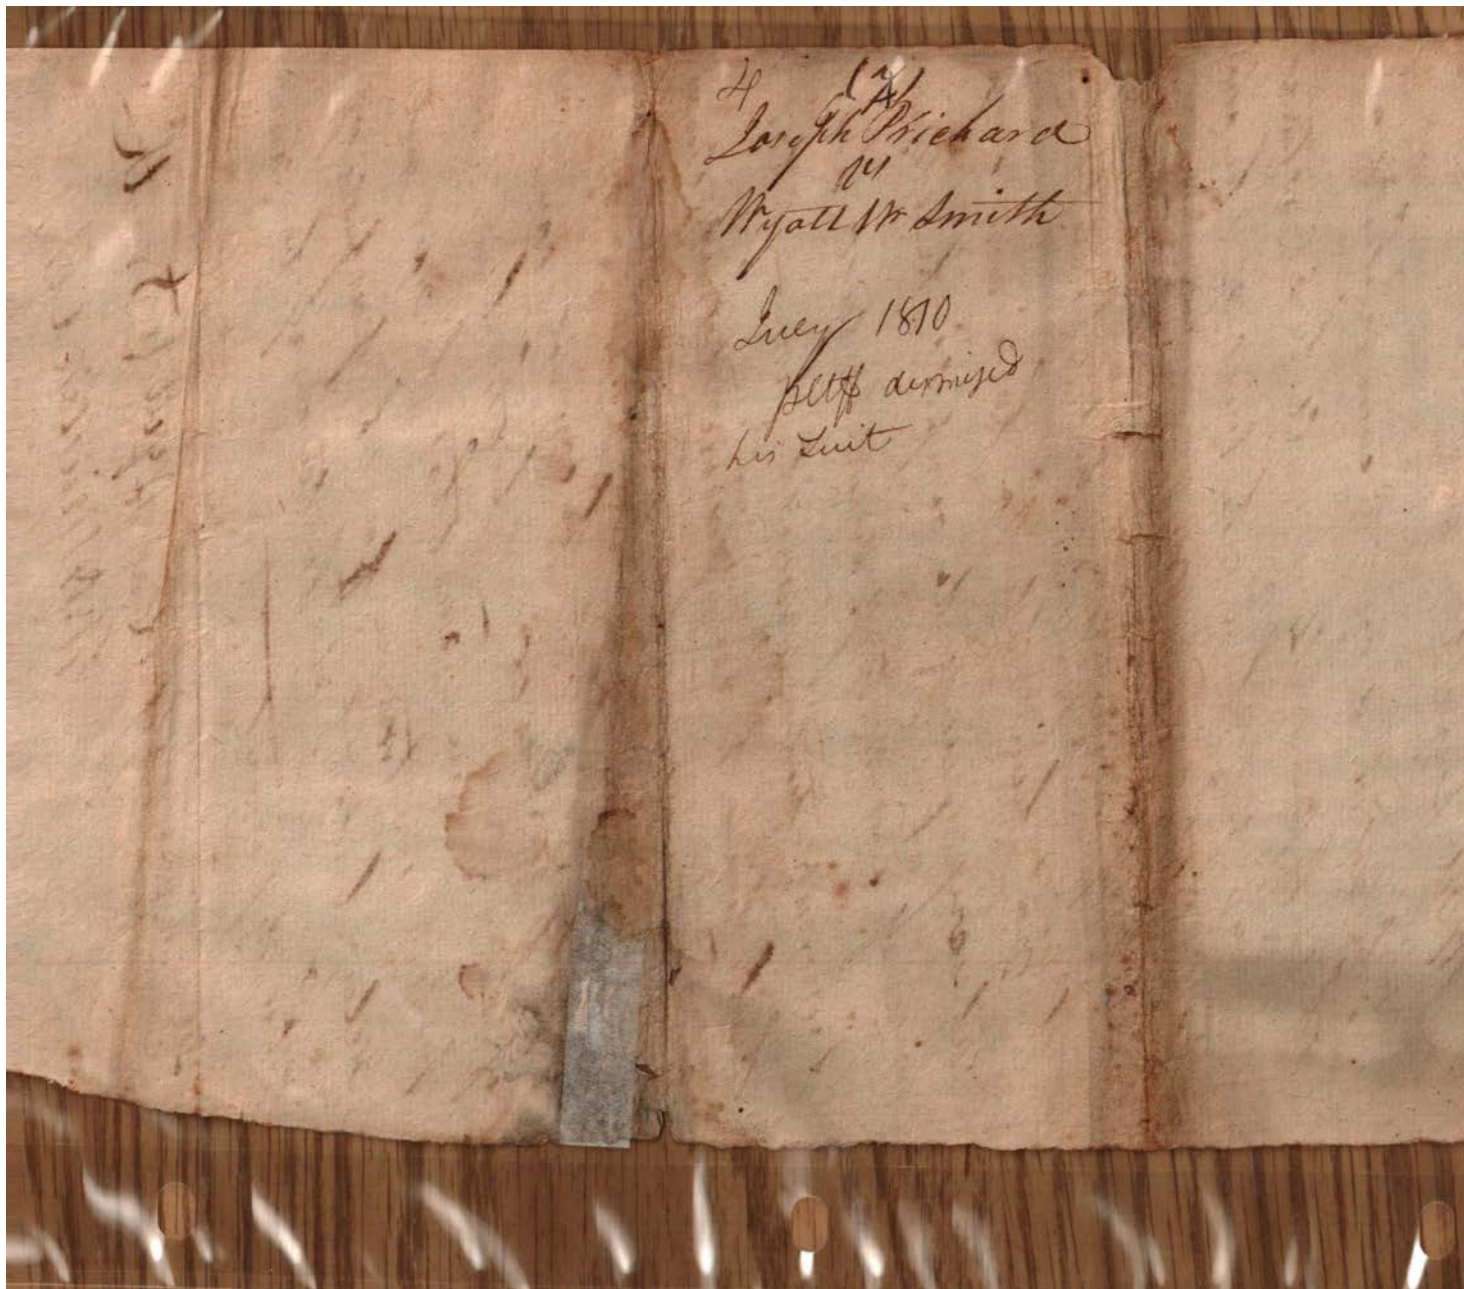 4
Joseph Prichard
vs
Wyatt W Smith
July 1810
pltff dismised
his Suit